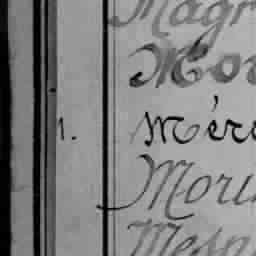 Magr
Mor
1. Mére
Mori
Mesn